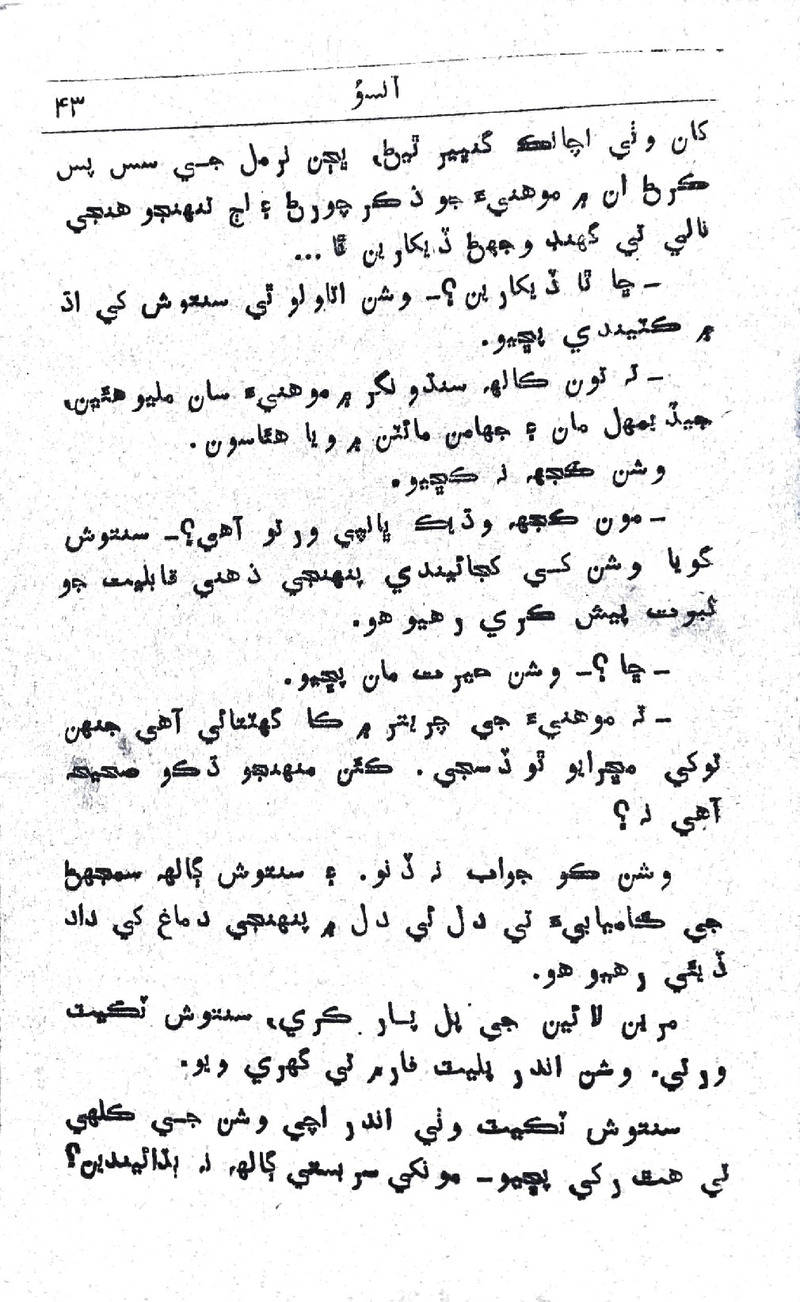 آلسوُ
۴۳
کان وٺي اچانڪ گنڀير ٿيڻ، ڀڃن نرمل جـي سس پس
ڪرڻ ان ۾ موهنيءَ جو ذڪر چورڻ ۽ اڄ تنهنجو هنجي
نالي تي گهنڊ وجهڻ ڏيکارين ٿا ...
ـ ڇا ٿا ڏيکارين؟ـ وشن اتاولو ٿي سنتوش کي اڌ
۾ ڪٽيندي پڇيو.
ـ تہ تون ڪالهہ سنڌو نگر ۾ موهنيءَ سان مليو هئين،
جيڏيمهل مان ۽ جهامن مائٽن ۾ ويا هئاسون.
وشن ڪجهہ نہ ڪڇيو.
ـ مون ڪجهہ وڌيڪ ڀانپي ورتو آهي؟ـ سنتوش
گويا وشن کـي کجائيندي پنهنجي ذهني قابليت جو
ثبوت پيش ڪري رهيو هو.
ـ ڇا؟ـ وشن حيرت مان پڇيو.
ـ تہ موهنيءَ جي چرِيتر ۾ ڪا گهٽتائي آهي جنهن
توکي مڇرايو ٿو ڏسجي. ڪئن منهنجو ڌڪو صحيح
آهي نہ؟
وشن ڪو جواب نہ ڏنو. ۽ سنتوش ڳالهہ سمجهڻ
جي ڪاميابيءَ تي دل ئي دل ۾ پنهنجي دماغ کي داد
ڏيئي رهيو هو.
مرين لائين جي پل پـار ڪري، سنتوش ٽڪيٽ
ورتي. وشن اندر پليٽ فارم تي گهڙي ويو.
سنتوش ٽڪيٽ وٺي اندر اچي وشن جـي ڪلهي
تي هٿ رکي پڇيو ـ مونکي سربستي ڳالهہ نہ ٻڌائيندين؟